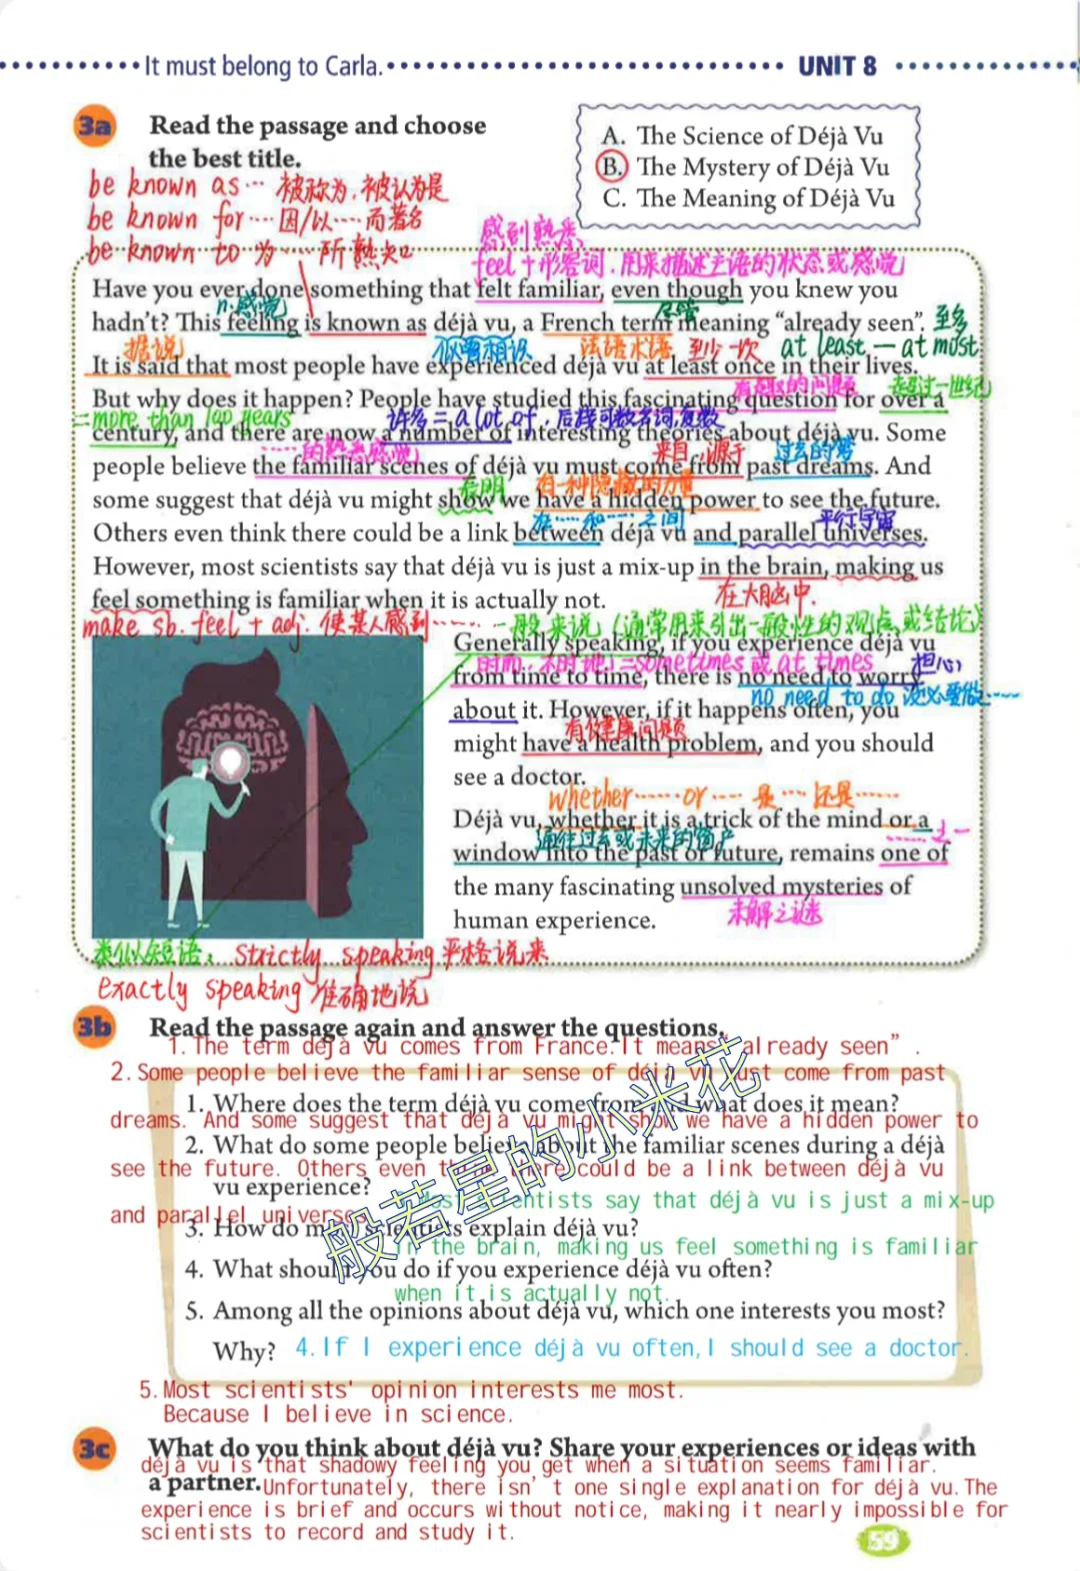 It must belong to Carla.
UNIT 8
3a Read the passage and choose
the best title.
A. The Science of Déjà Vu
B. The Mystery of Déjà Vu
C. The Meaning of Déjà Vu
be known as… 被称为,被认为是
be known for…. 因/以……而著名
be known to 为……所熟知
感到熟悉
feel+形容词.用来描述主语的状态或感觉
Have you ever done something that felt familiar, even though you knew you
n.感觉
尽管
hadn't? This feeling is known as déjà vu, a French term meaning “already seen”.
至多
据说
似曾相识
法语术语
至少一次
at least — at most
It is said that most people have experienced déjà vu at least once in their lives.
有趣的问题
超过一世纪
But why does it happen? People have studied this fascinating question for over a
=more than 100 years
许多=a lot of,后接可数名词复数
century, and there are now a number of interesting theories about déjà vu. Some
……的熟悉感觉
来自,源于
过去的梦
people believe the familiar scenes of déjà vu must come from past dreams. And
表明
有一种隐藏的力量
some suggest that déjà vu might show we have a hidden power to see the future.
在……和……之间
平行宇宙
Others even think there could be a link between déjà vu and parallel universes.
However, most scientists say that déjà vu is just a mix-up in the brain, making us
在大脑中.
feel something is familiar when it is actually not.
make sb. feel + adj. 使某人感到……
一般来说(通常用来引出一般性的观点或结论)
Generally speaking, if you experience déjà vu
时而,不时地)=sometimes 或 at times
担心
from time to time, there is no need to worry
no need to do 没必要做……
about it. However, if it happens often, you
有健康问题
might have a health problem, and you should
see a doctor.
whether……or…. 是…还是……
Déjà vu, whether it is a trick of the mind or a
通往过去或未来的窗户
……之一
window into the past or future, remains one of
the many fascinating unsolved mysteries of
未解之谜
human experience.
类似短语: Strictly speaking 严格说来
exactly speaking 准确地说
3b Read the passage again and answer the questions.
1.The term déjà vu comes from France.It means“already seen”.
2.Some people believe the familiar sense of déjà vu must come from past
1. Where does the term déjà vu come from and what does it mean?
dreams. And some suggest that déjà vu might show we have a hidden power to
2. What do some people believe about the familiar scenes during a déjà
see the future. Others even think there could be a link between déjà vu
vu experience?
Most scientists say that déjà vu is just a mix-up
and parallel universes.
3. How do most scientists explain déjà vu?
in the brain, making us feel something is familiar
4. What should you do if you experience déjà vu often?
when it is actually not.
5. Among all the opinions about déjà vu, which one interests you most?
Why?
4.If I experience déjà vu often,I should see a doctor.
般若星的小米花
5.Most scientists' opinion interests me most.
Because I believe in science.
3c What do you think about déjà vu? Share your experiences or ideas with
déjà vu is that shadowy feeling you get when a situation seems familiar.
a partner.
Unfortunately, there isn't one single explanation for déjà vu.The
experience is brief and occurs without notice, making it nearly impossible for
scientists to record and study it.
59